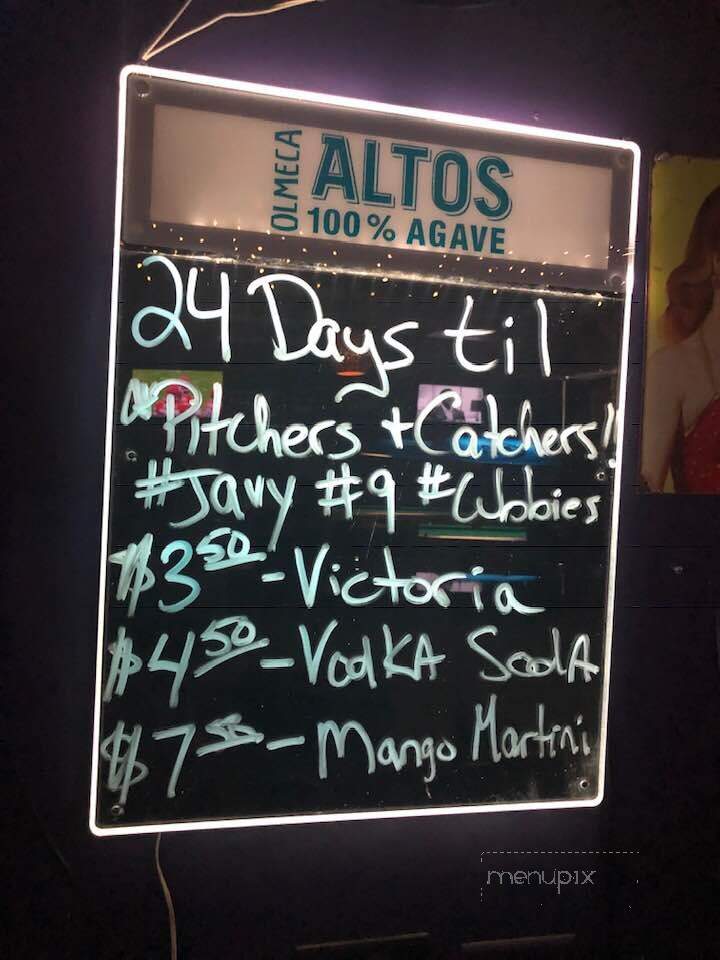 OLMECA
ALTOS
100% AGAVE
24 Days til
Pitchers + Catchers!!
#Javy #9 #Cubbies
$3.50 - Victoria
$4.50 - VodkA SodA
$7 - Mango Martini
menupix